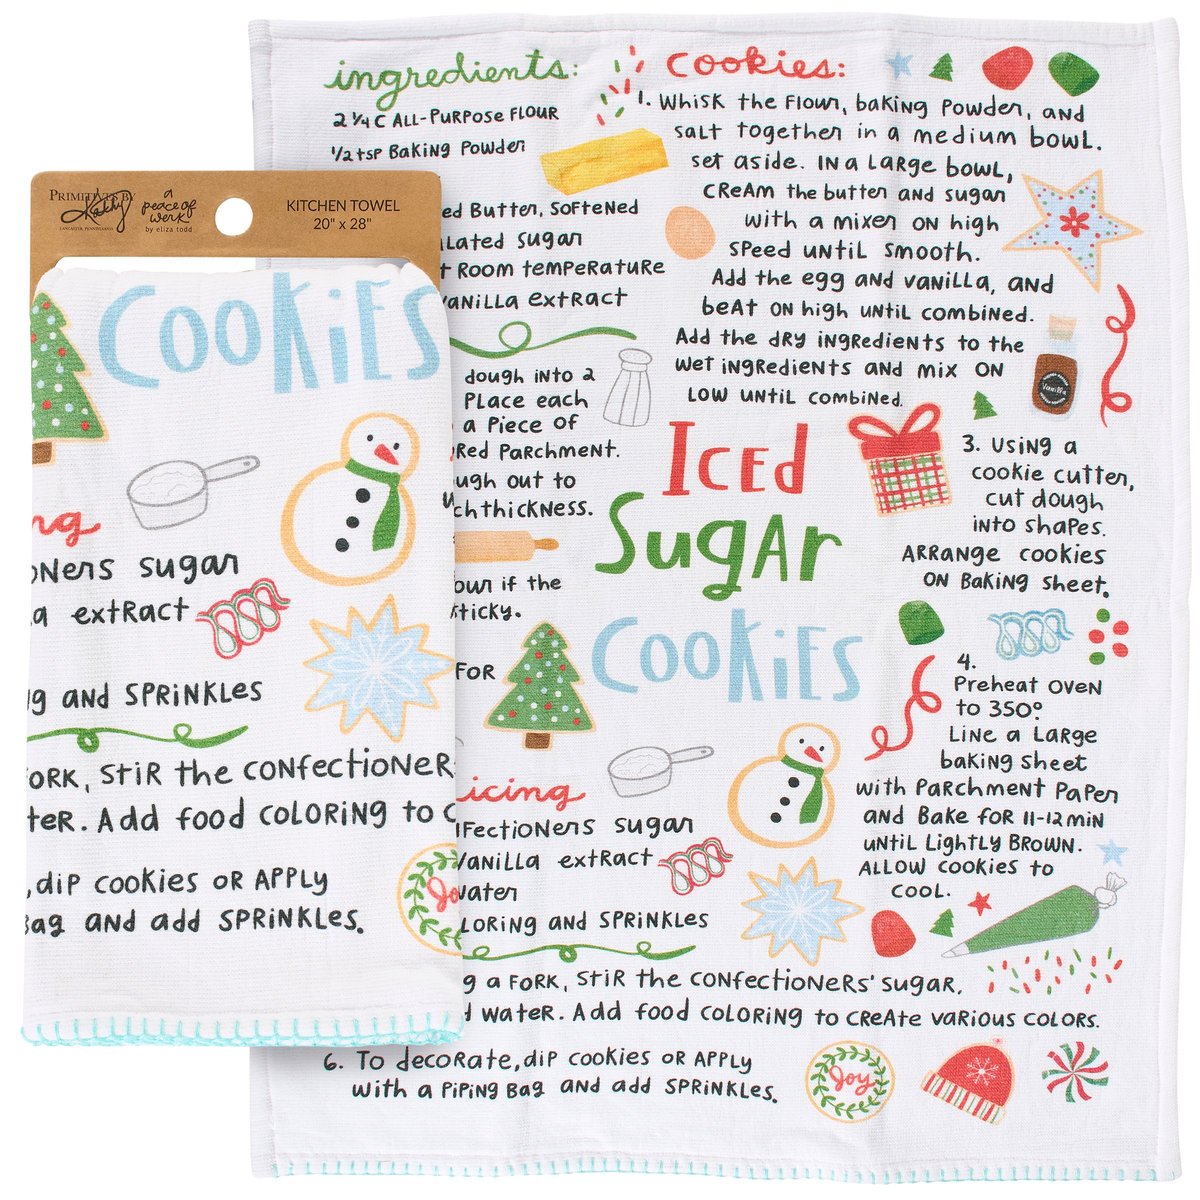 ingredients:
2 1/4 C All-Purpose Flour
1/2 tsp Baking Powder
Butter, Softened
sugar
Room temperature
vanilla extract
cookies:
1. Whisk the flour, baking powder, and
salt together in a medium bowl.
set aside. In a large bowl,
cream the butter and sugar
with a mixer on high
speed until smooth.
Add the egg and vanilla, and
beat on high until combined.
Add the dry ingredients to the
wet ingredients and mix on
low until combined.
Vanilla
dough into 2
Place each
a piece of
Parchment.
out to
thickness.
if the
sticky.
Iced
Sugar
Cookies
3. Using a
cookie cutter,
cut dough
into shapes.
Arrange cookies
on baking sheet.
4.
Preheat oven
to 350°.
Line a large
baking sheet
with parchment paper
and bake for 11-12 min
until lightly brown.
Allow cookies to
cool.
for
icing
sugar
vanilla extract
water
and sprinkles
a fork, stir the confectioners' sugar,
water. Add food coloring to create various colors.
6. To decorate, dip cookies or apply
with a piping bag and add sprinkles.
Joy
PRIMITIVES BY
Kathy
LANCASTER, PENNSYLVANIA
a
peace of
werk
by eliza todd
KITCHEN TOWEL
20" x 28"
Cookies
sugar
extract
and sprinkles
fork, stir the
Add food coloring to
, dip cookies or apply
and add sprinkles.